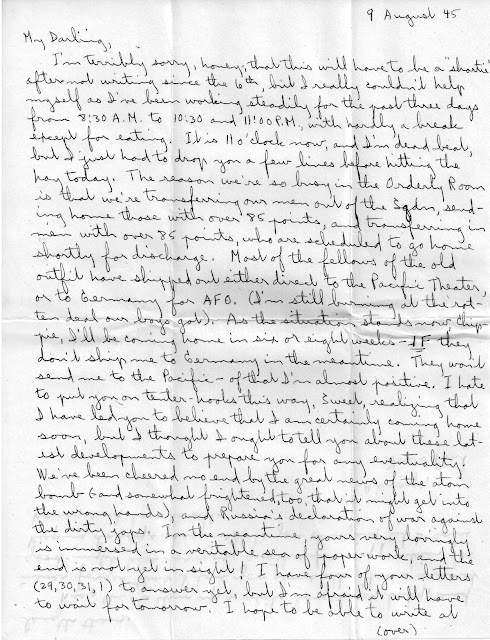 9 August 45
My Darling,
I'm terribly sorry, honey, that this will have to be a "shortie"
after not writing since the 6th, but I really couldn't help
myself as I've been working steadily for the past three days
from 8:30 A.M. to 10:30 and 11:00 P.M., with hardly a break
except for eating. It is 11 o'clock now, and I'm dead beat,
but I just had to drop you a few lines before hitting the
hay today. The reason we're so busy in the Orderly Room
is that we're transferring our men out of the Sqdn, send-
ing home those with over 85 points, and transferring in
men with over 85 points, who are scheduled to go home
shortly for discharge. Most of the fellows of the old
outfit have shipped out either direct to the Pacific Theater,
or to Germany for AFO. (I'm still burning at the rot-
ten deal our boys got). As the situation stands now Chip-
pie, I'll be coming home in six or eight weeks - IF they
don't ship me to Germany in the meantime. They won't
send me to the Pacific - of that I'm almost positive. I hate
to put you on tenter-hooks this way, Sweet, realizing that
I have led you to believe that I am certainly coming home
soon, but I thought I ought to tell you about these lat-
est developments to prepare you for any eventuality.
We've been cheered no end by the great news of the atom
bomb (and somewhat frightened, too, that it might get into
the wrong hands), and Russia's declaration of war against
the dirty Japs. In the meantime, yours very lovingly
is immersed in a veritable sea of paper work, and the
end is not yet in sight! I have four of your letters
(29, 30, 31, 1) to answer yet, but I'm afraid it will have
to wait for tomorrow. I hope to be able to write at
(over)